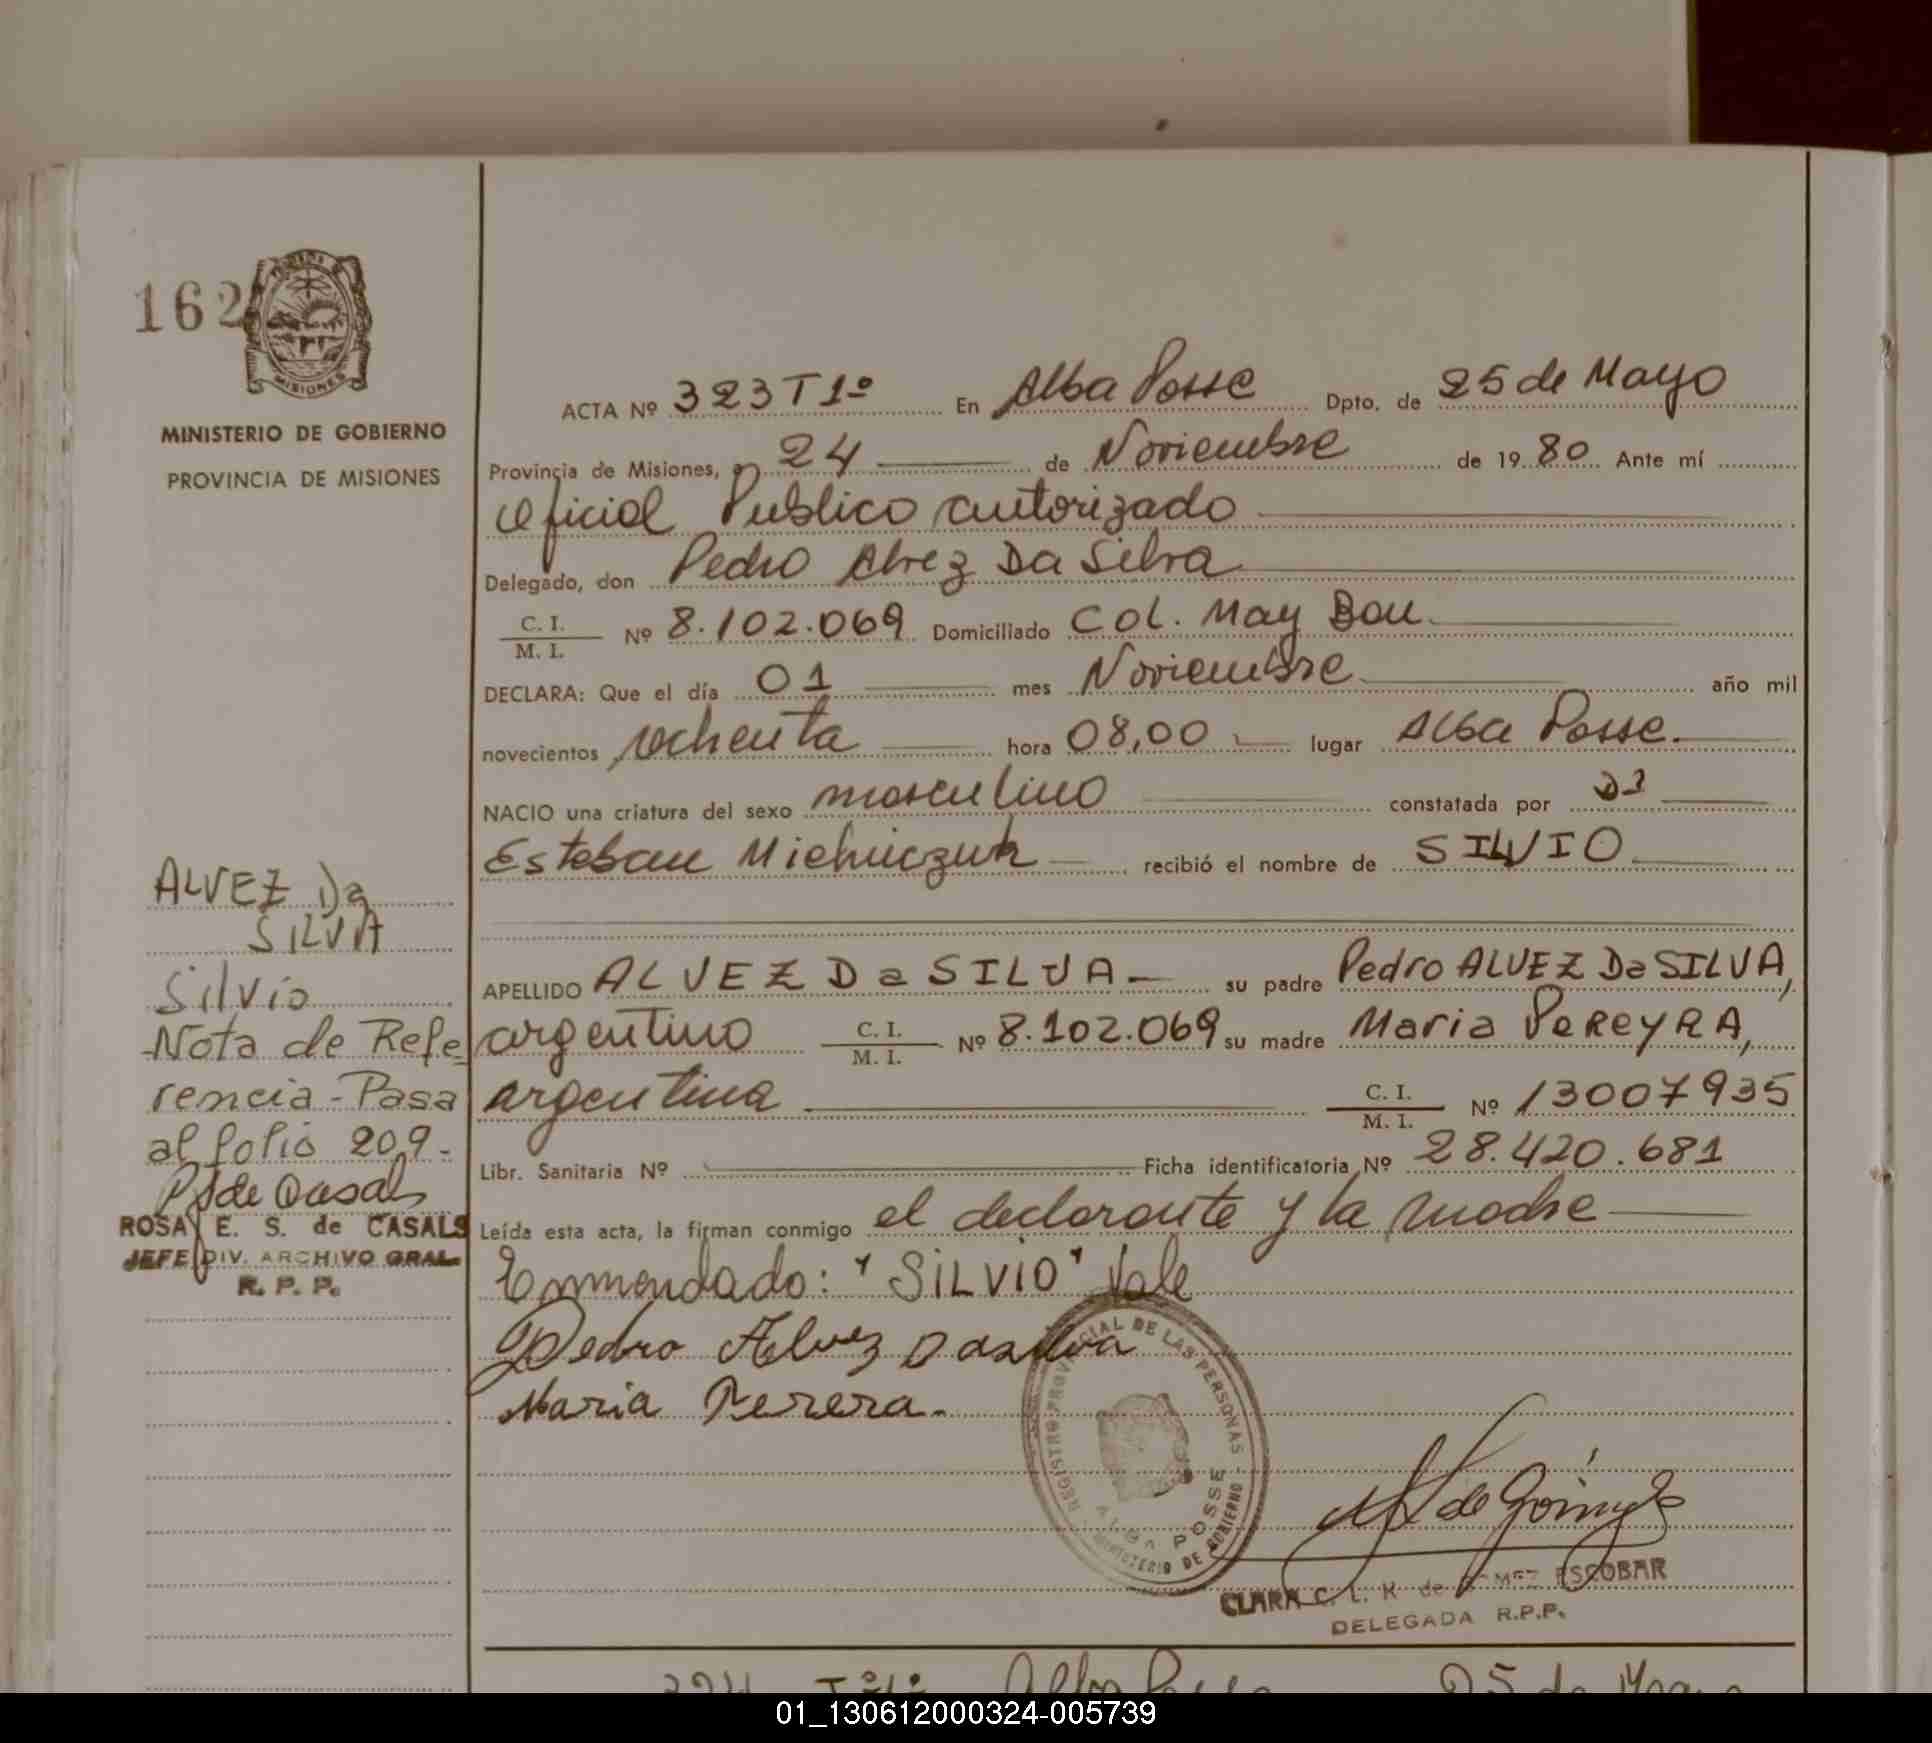 162
MISIONES
MINISTERIO DE GOBIERNO
PROVINCIA DE MISIONES
ACTA Nº 323 T 1º En Alba Posse Dpto. de 25 de Mayo
Provincia de Misiones, a 24 de Noviembre de 19 80 Ante mí
Oficial Publico autorizado
Delegado, don Pedro Alvez Da Silva
C. I. / M. I. Nº 8.102.069 Domiciliado Col. May Bou
DECLARA: Que el día 01 mes Noviembre año mil
novecientos ochenta hora 08,00 lugar Alba Posse.
NACIO una criatura del sexo masculino constatada por
Esteban recibió el nombre de SILVIO
APELLIDO ALVEZ Da SILVA su padre Pedro ALVEZ Da SILVA,
argentino C. I. / M. I. Nº 8.102.069 su madre Maria PeReyRA,
argentina C. I. / M. I. Nº 13007935
Libr. Sanitaria Nº Ficha identificatoria Nº 28.420.681
Leída esta acta, la firman conmigo el declarante y la madre
Enmendado: "SILVIO" Vale
Pedro Alvez Dasilva
Maria Perera.
REGISTRO PROVINCIAL DE LAS PERSONAS
ALBA POSSE
MINISTERIO DE GOBIERNO
CLARA C. L. K. de GOMEZ ESCOBAR
DELEGADA R.P.P.
ALVEZ Da
SILVA
Silvio
Nota de Refe
rencia - Pasa
al folio 209.
ROSA E. S. de CASALS
JEFE DIV. ARCHIVO GRAL.
R. P. P.
01_130612000324-005739